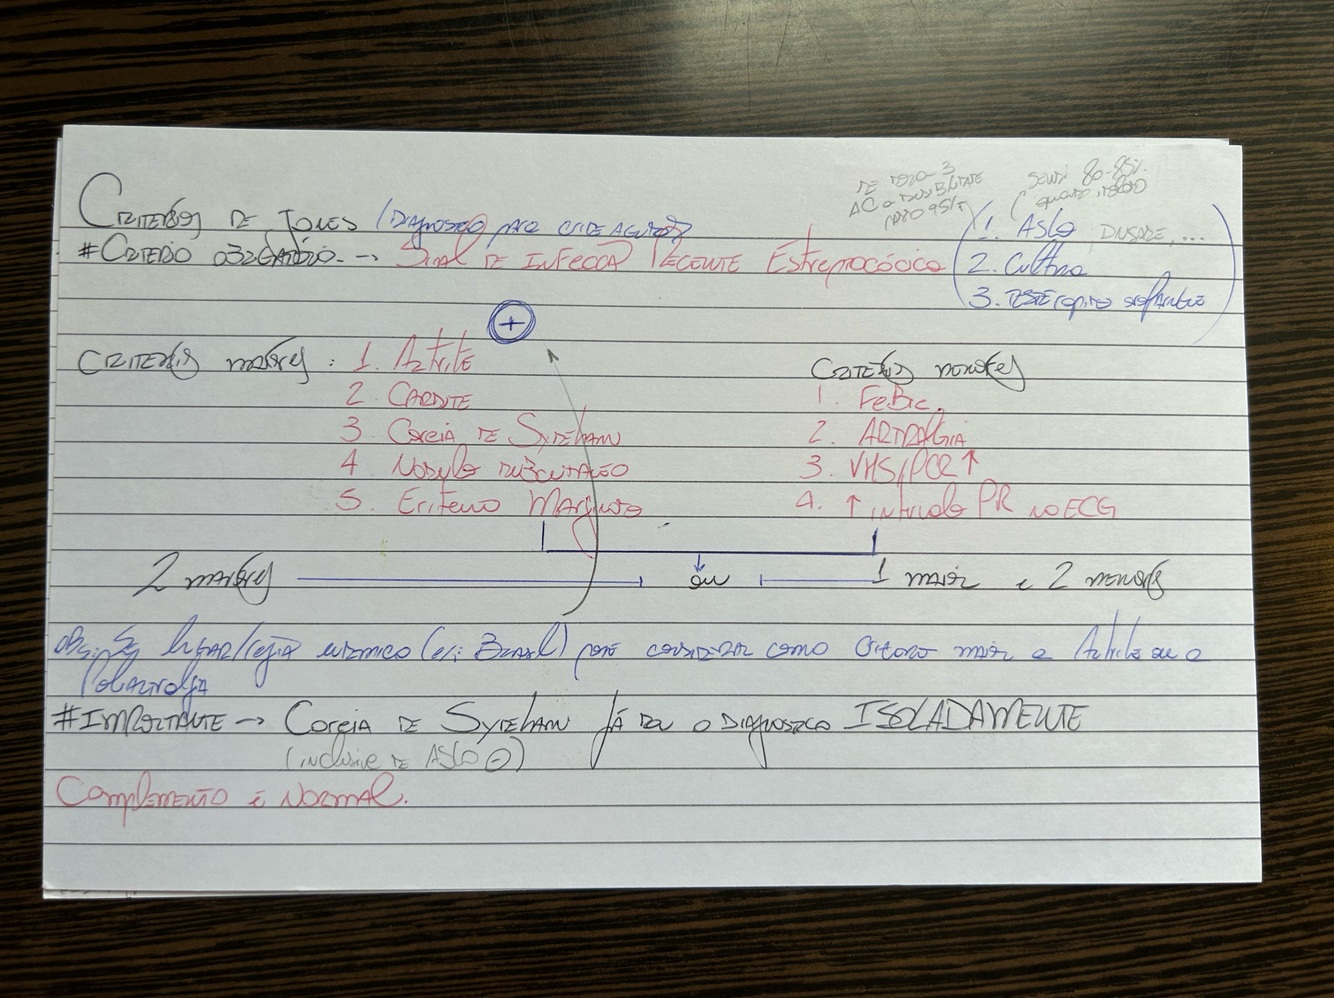 Critérios de Jones (Diagnóstico para crise aguda)
#Critério obrigatório → Sinal de Infecção Recente Estreptocócica
Se dozo 3
AC a sensibilidade
para 95%
Sensi 80-85%
quando isolado
1. ASLO, DNSASE, ...
2. Cultura
3. Teste rápido
+
Critérios maiores : 1. Artrite
2. Cardite
3. Coreia de Sydeham
4. Nódulo subcutâneo
5. Eritema Marginato
Critérios menores
1. Febre
2. Artralgia
3. VHS/PCR ↑
4. ↑ intervalo PR no ECG
2 maiores ou 1 maior e 2 menores
Obs.: Se lugar/região endêmico (ex: Brasil) pode considerar como critério maior a Artrite ou a
Poliartralgia
#IMPORTANTE → Coreia de Sydeham já dou o diagnóstico ISOLADAMENTE
(inclusive se ASLO ⊖)
Complemento é Normal.